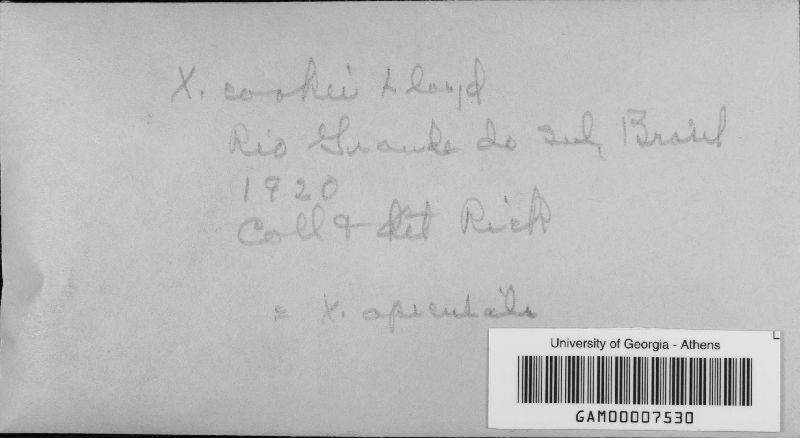 X. cookei Lloyd
Rio Grande do Sul, Brasil
1920
Coll & det Rick
= X. apiculata
University of Georgia - Athens
GAM00007530